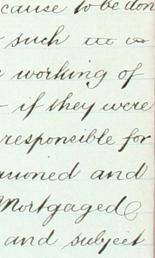 cause to be don
such
working of
if they were
responsible for
and
Mortgaged
and subject